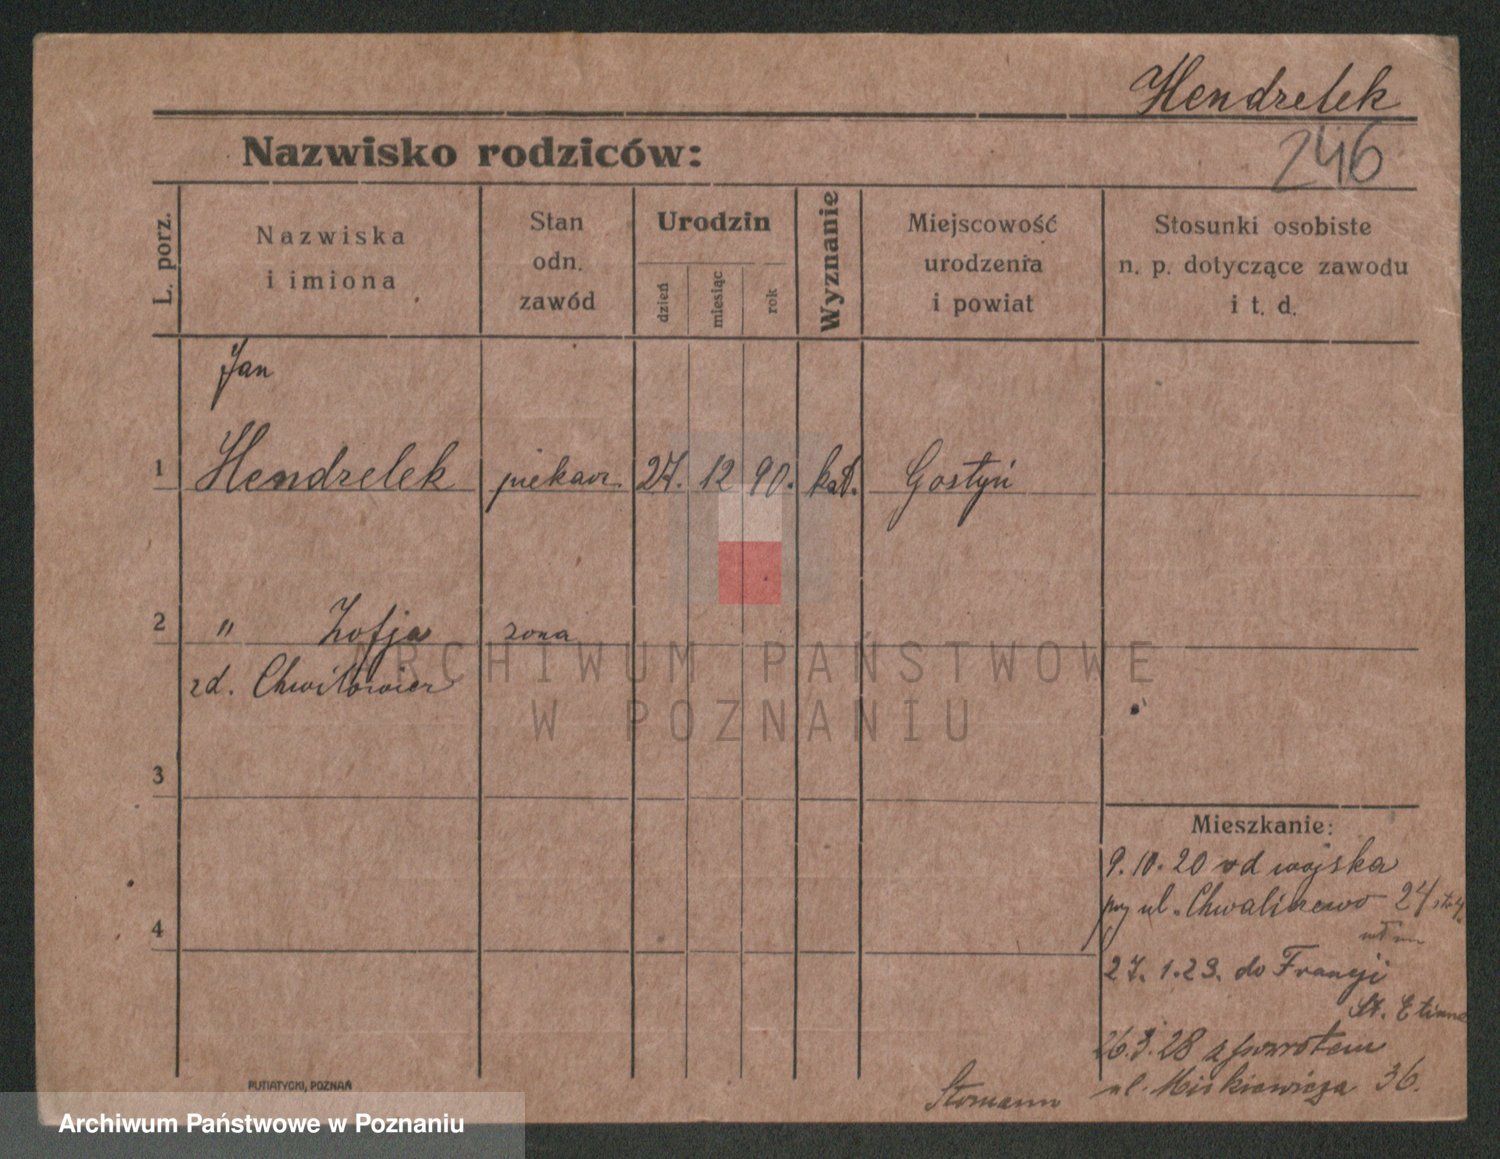 Hendrelek
246
Nazwisko rodziców:
L. porz.
Nazwiska
i imiona
Stan
odn.
zawód
Urodzin
dzień
miesiąc
rok
Wyznanie
Miejscowość
urodzenia
i powiat
Stosunki osobiste
n. p. dotyczące zawodu
i t. d.
Jan
1 Hendrelek piekarz. 27. 12 90. kat. Gostyń
2 " Zofja zona
zd. Chwiłowicz
3
4
Mieszkanie:
9.10.20 od wojska
przy ul. Chwaliszewo 24
27. 1.23. do Francji
St. Etienne
26.3.28 z powrotem
ul. Mickiewicza 36.
PUTIATYCKI, POZNAŃ
ARCHIWUM PAŃSTWOWE
W POZNANIU
Archiwum Państwowe w Poznaniu